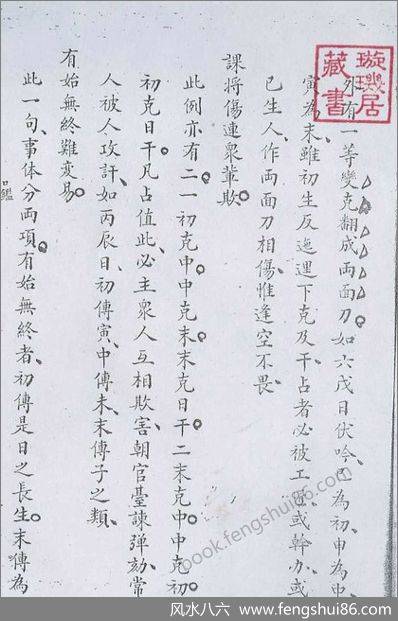 璇璣居
藏書
外有一等變克翻成両面刀如六戊日伏吟巳為初申為中
寅為末雖初生反迤逦下克及干占者必被工或幹办或
已生人作両面刀相傷惟逢空不畏
課将傷連衆輩欺
此例亦有二一初克中中克末末克日干二末克中中克初
初克日干凡占值此必主衆人互相欺害朝官臺諫弹劾常
人被人攻訐如丙辰日初傳寅中傳未末傳子之類
有始無終難变易
此一句事体分両項有始無終者初傳是日之長生末傳為
口鑑
book.fengshui86.com
风水八六 www.fengshui86.com